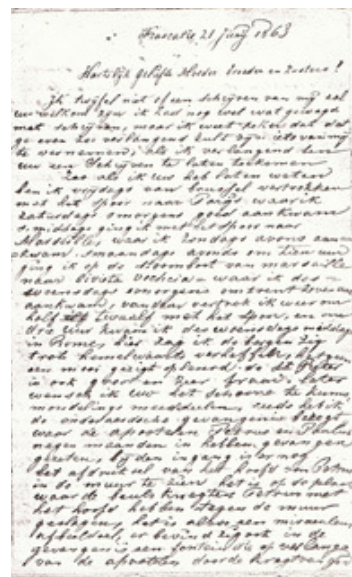 Frascatie 21 Junij 1863
Hartelijk geliefde Moeder broeders en Zusters!
Ik twijfel niet of een schrijven van mij zal
uw welkom zijn ik had nog wel wat gewagt
met schrijven, maar ik weet zeker dat dat
ge even zoo verlangend zult zijn iets van mij
te vernemen, als ik verlangend ben
uw een Schrijven te laten toekomen
Zoo als ik uw heb laten weten
ben ik vrijdags van brussel vertrokken
met het spoor naar Parijs waar ik
zaturdags smorgens goed aankwam
smiddags ging ik met het spoor naar
Marseille, waar ik Zondags avons aan
kwam. smaandags avonds om tien uur
ging ik op de stoomboot van marseille
naar Civieta vechia. waar ik des
woensdags smorgens omtrent zeven uur
aankwam, van daar vertrok ik weer om
half twaalf met het spoor, en om
drie uur kwam ik des woensdags middags
in Rome, hier zag ik de bergen zig
trots hemelwaards verheffen,
een mooi gezigt opleverd. de St Pieter
is ook groot en zeer fraai. later
wensch ik uw het schoone te Rome
mondelings meedeelen, reeds heb ik
de onderaardsche gevangenis bezogt
waar de Apostelen Petrus en Phaulus
negen maanden in hebben gevangen
gezeten, bij den ingang is er nog
het afdruksel van het hoofd van Petrus
in de muur te zien het is op de plaats
waar de beuls knegten Petrus met
het hoofd hebben tegen de muur
geslagen, dat is alles een miraculeus
afbeeldsel, er bevind zig ook in de
gevangenis een fontein die op verlangen
van de apostelen door de kragt van God